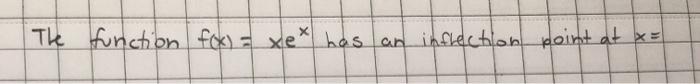 The function f(x) = xeˣ has an inflection point at x =